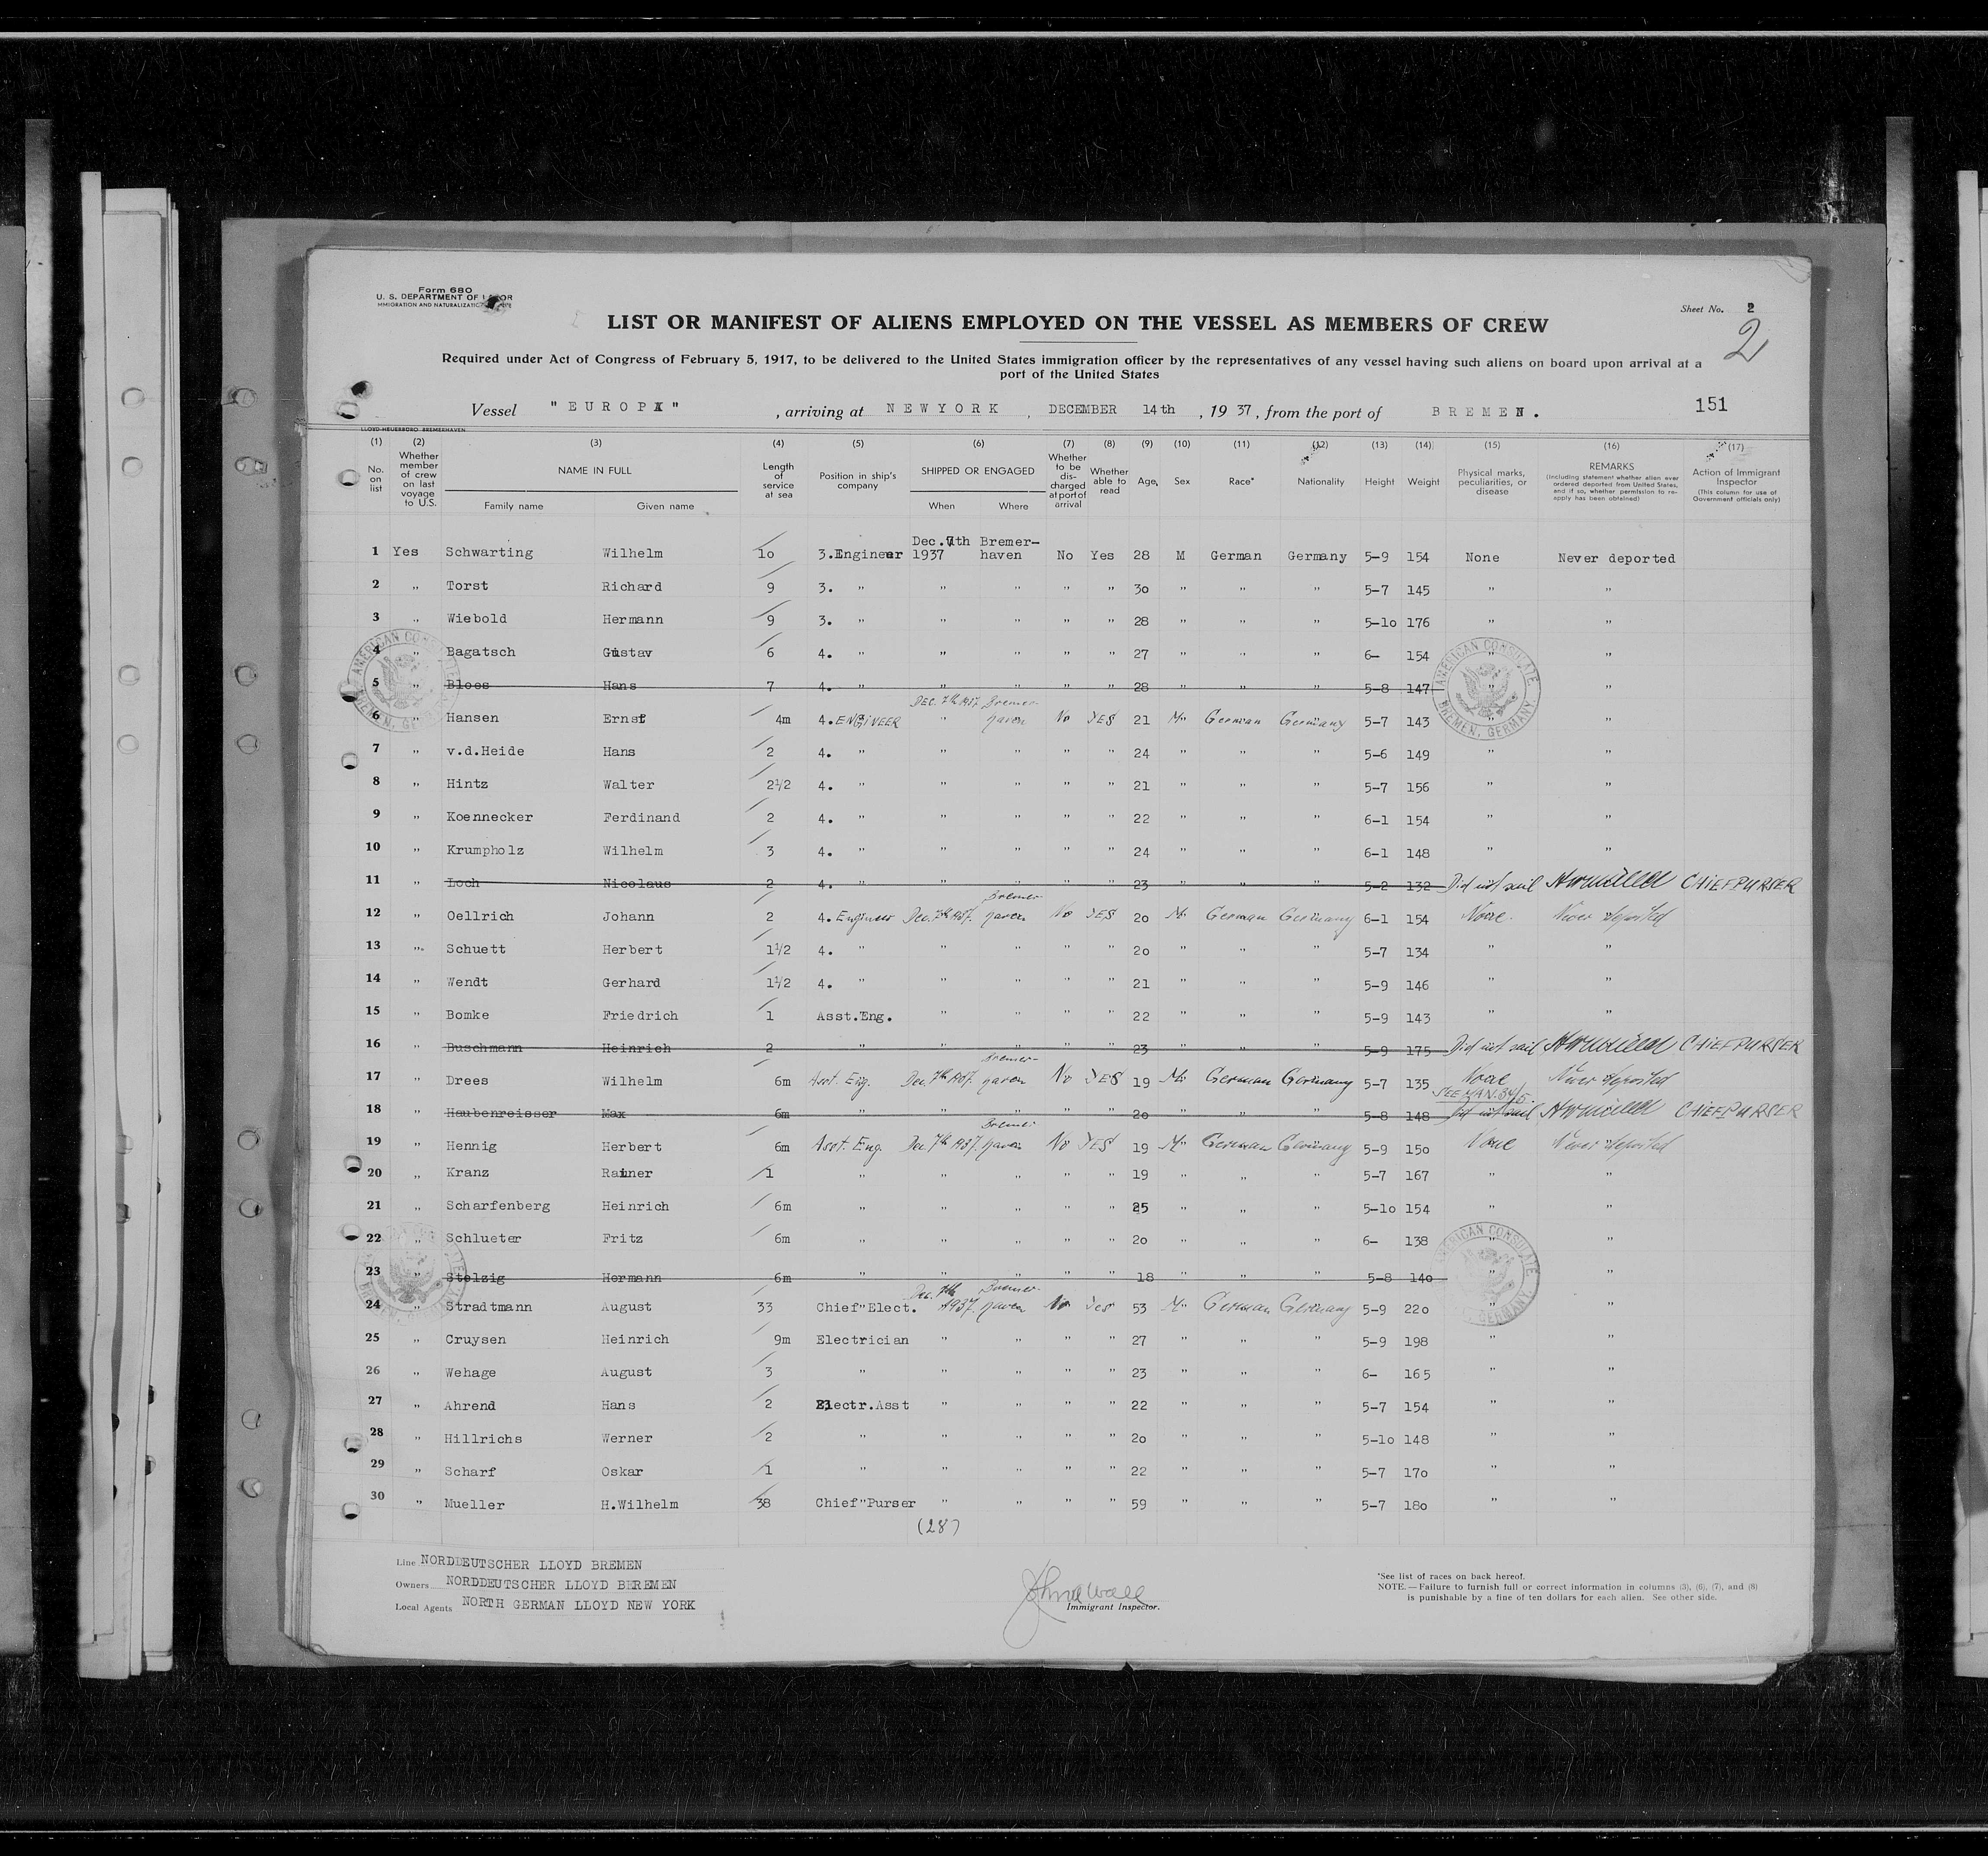 Form 680
U. S. DEPARTMENT OF LABOR
IMMIGRATION AND NATURALIZATION
Sheet No. 2
2
LIST OR MANIFEST OF ALIENS EMPLOYED ON THE VESSEL AS MEMBERS OF CREW
Required under Act of Congress of February 5, 1917, to be delivered to the United States immigration officer by the representatives of any vessel having such aliens on board upon arrival at a
port of the United States
Vessel "EUROPA" , arriving at NEWYORK , DECEMBER 14th , 1937, from the port of BREMEN.
151
LLOYD-HEUERBÜRO BREMERHAVEN
(1) (2) (3) (4) (5) (6) (7) (8) (9) (10) (11) (12) (13) (14) (15) (16) (17)
No. on list
Whether member of crew on last voyage to U.S.
NAME IN FULL
Family name Given name
Length of service at sea
Position in ship's company
SHIPPED OR ENGAGED
When Where
Whether to be discharged at port of arrival
Whether able to read
Age, Sex Race* Nationality Height Weight
Physical marks, peculiarities, or disease
REMARKS
(Including statement whether alien ever ordered deported from United States, and if so, whether permission to reapply has been obtained)
Action of Immigrant Inspector
(This column for use of Government officials only)
1 Yes Schwarting Wilhelm 10 3.Engineer Dec.7th 1937 Bremer-haven No Yes 28 M German Germany 5-9 154 None Never deported
2 " Torst Richard 9 3. " " " " " 30 " " " 5-7 145 " "
3 " Wiebold Hermann 9 3. " " " " " 28 " " " 5-10 176 " "
4 " Bagatsch Gustav 6 4. " " " " " 27 " " " 6- 154 " "
5 " Bloes Hans 7 4. " " " " " 28 " " " 5-8 147 " "
6 " Hansen Ernst 4m 4. ENGINEER DEC. 7th 1937. Bremer-haven No YES 21 M" German Germany 5-7 143 " "
7 " v.d.Heide Hans 2 4. " " " " " 24 " " " 5-6 149 " "
8 " Hintz Walter 2½ 4. " " " " " 21 " " " 5-7 156 " "
9 " Koennecker Ferdinand 2 4. " " " " " 22 " " " 6-1 154 " "
10 " Krumpholz Wilhelm 3 4. " " " " " 24 " " " 6-1 148 " "
11 " Loch Nicolaus 2 4. " " " " " 23 " " " 5-2 132 Did not sail CHIEF PURSER
12 " Oellrich Johann 2 4. Engineer Dec. 7th 1937. Bremer-haven No YES 20 M" German Germany 6-1 154 None. Never deported
13 " Schuett Herbert 1½ 4. " " " " " 20 " " " 5-7 134 " "
14 " Wendt Gerhard 1½ 4. " " " " " 21 " " " 5-9 146 " "
15 " Bomke Friedrich 1 Asst.Eng. " " " " 22 " " " 5-9 143 " "
16 " Buschmann Heinrich 2 " " " " " 23 " " " 5-9 175 Did not sail CHIEF PURSER
17 " Drees Wilhelm 6m Asst. Eng. Dec. 7th 1937. Bremer-haven No YES 19 M" German Germany 5-7 135 None Never deported
SEE MAN. 34/5.
18 " Haubenreisser Max 6m " " " " " 20 " " " 5-8 148 Did not sail CHIEF PURSER
19 " Hennig Herbert 6m Asst. Eng. Dec. 7th 1937. Bremer-haven No YES 19 M" German Germany 5-9 150 None Never deported
20 " Kranz Rainer 1 " " " " " 19 " " " 5-7 167 " "
21 " Scharfenberg Heinrich 6m " " " " " 25 " " " 5-10 154 " "
22 " Schlueter Fritz 6m " " " " " 20 " " " 6- 138 " "
23 " Stolzig Hermann 6m " " " " " 18 " " " 5-8 140 " "
24 " Stradtmann August 33 Chief"Elect. Dec. 7th 1937. Bremer-haven No Yes 53 M" German Germany 5-9 220 " "
25 " Cruysen Heinrich 9m Electrician " " " " 27 " " " 5-9 198 " "
26 " Wehage August 3 " " " " " 23 " " " 6- 165 " "
27 " Ahrend Hans 2 Electr.Asst " " " " 22 " " " 5-7 154 " "
28 " Hillrichs Werner 2 " " " " " 20 " " " 5-10 148 " "
29 " Scharf Oskar 1 " " " " " 22 " " " 5-7 170 " "
30 " Mueller H.Wilhelm 38 Chief"Purser " " " " 59 " " " 5-7 180 " "
(28)
AMERICAN CONSULATE
BREMEN, GERMANY
AMERICAN CONSULATE
BREMEN, GERMANY
AMERICAN CONSULATE
BREMEN, GERMANY
AMERICAN CONSULATE
BREMEN, GERMANY
Line NORDDEUTSCHER LLOYD BREMEN
Owners NORDDEUTSCHER LLOYD BREMEN
Local Agents NORTH GERMAN LLOYD NEW YORK
Immigrant Inspector.
*See list of races on back hereof.
NOTE.—Failure to furnish full or correct information in columns (3), (6), (7), and (8)
is punishable by a fine of ten dollars for each alien. See other side.